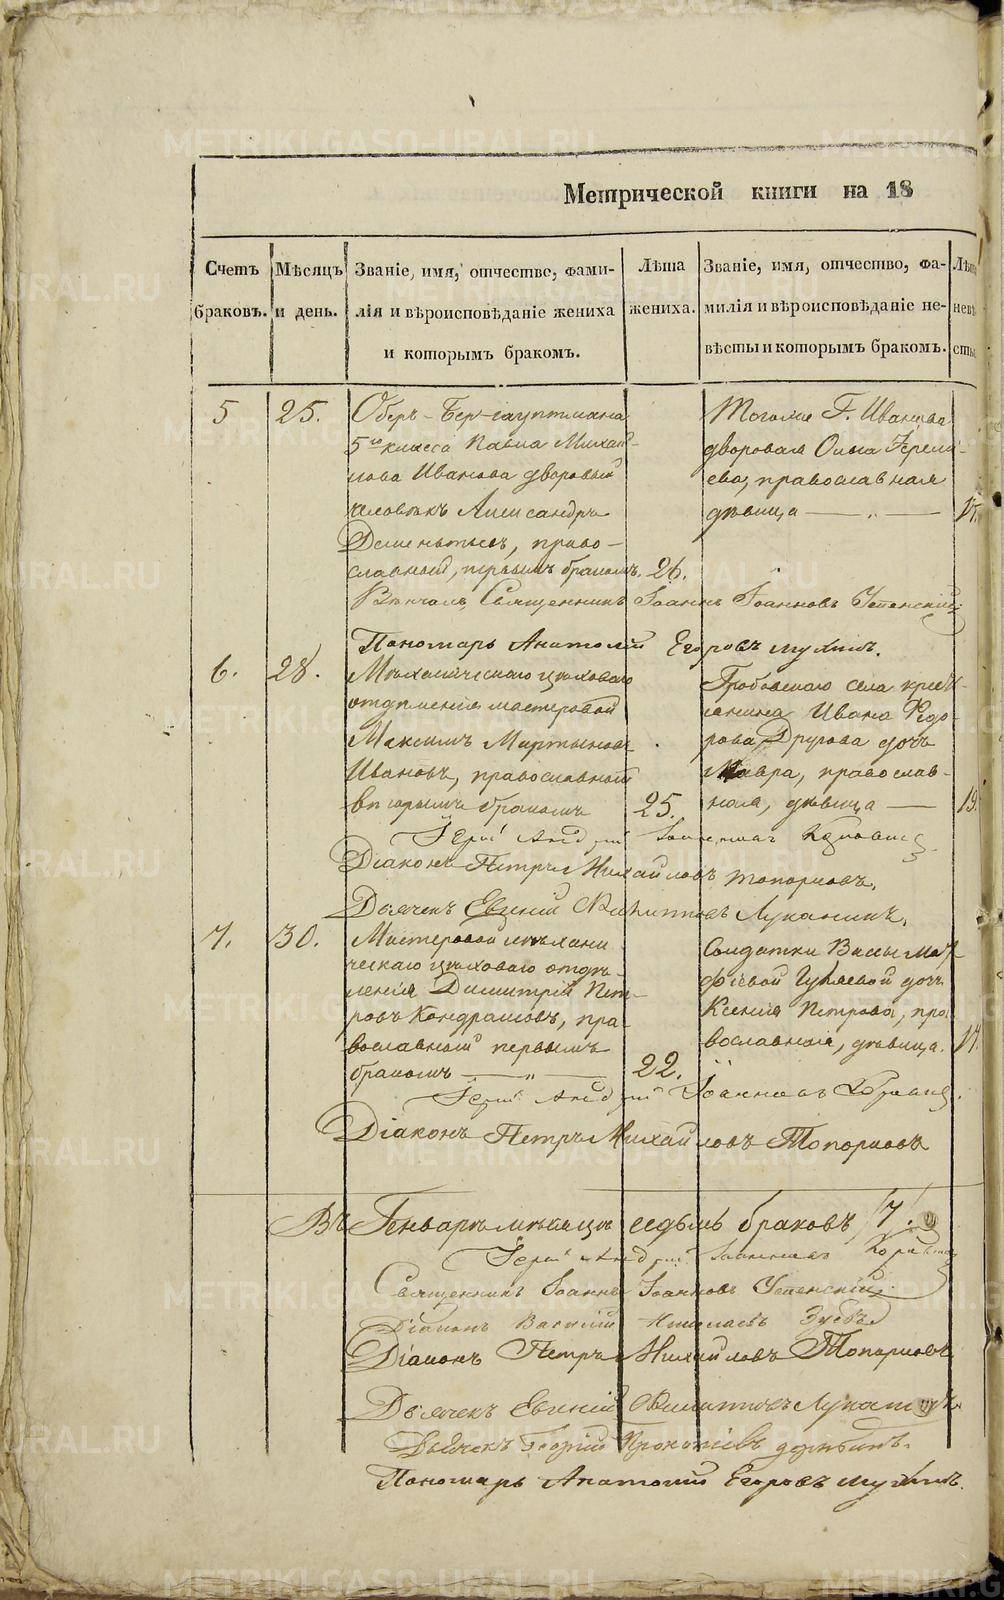 Метрической книги на 18
Счетъ браковъ.
Мѣсяцъ и день.
Званіе, имя, отчество, фами-
лія и вѣроисповѣданіе жениха
и которымъ бракомъ.
Лѣта
жениха.
Званіе, имя, отчество, фа-
милія и вѣроисповѣданіе не-
вѣсты и которымъ бракомъ.
5
25.
Оберъ-Бергауптмана
5го класса Павла Михай-
лова Иванова дворовый
человѣкъ Александръ
Дементьевъ, право-
славный, первымъ бракомъ.
26.
Тогоже Г. Иванова
дворовая Ольга Ереме-
ева, православная
дѣвица
17.
Вѣнчалъ Священникъ Іоаннъ Іоанновъ Успенскій
Пономарь Анатолій Егоровъ Мухинъ.
6.
28.
Механическаго цеховаго
отдѣленія мастеровой
Максимъ Мартыновъ
Ивановъ, православный
вторымъ бракомъ
25.
Гробовскаго села крестья-
нина Ивана Ѳедо-
рова Другова дочь
Мавра, православ-
ная, дѣвица
19.
Іерей Андрей Іоанновъ
Діаконъ Петръ Михайловъ Топорковъ.
Дьячекъ Евгеній Филипповъ Луканинъ.
7.
30.
Мастеровой механи-
ческаго цеховаго отдѣ-
ленія Димитрій Пет-
ровъ Кондрашовъ, пра-
вославный первымъ
бракомъ
22.
Солдатки Васы Мат-
фѣевой дочь
Ксенія Петрова, пра-
вославная, дѣвица.
17.
Іерей Андрей Іоанновъ
Діаконъ Петръ Михайловъ Топорковъ
Въ Генварѣ мѣсяцѣ седьмь браковъ /7/.
Іерей Андрей Іоанновъ
Священникъ Іоаннъ Іоанновъ Успенскій
Діаконъ Василій Николаевъ
Діаконъ Петръ Михайловъ Топорковъ
Дьячекъ Евгеній Филипповъ Луканинъ.
Дьячекъ Георгій Прокопіевъ
Пономарь Анатолій Егоровъ Мухинъ.
METRIKI.GASO-URAL.RU